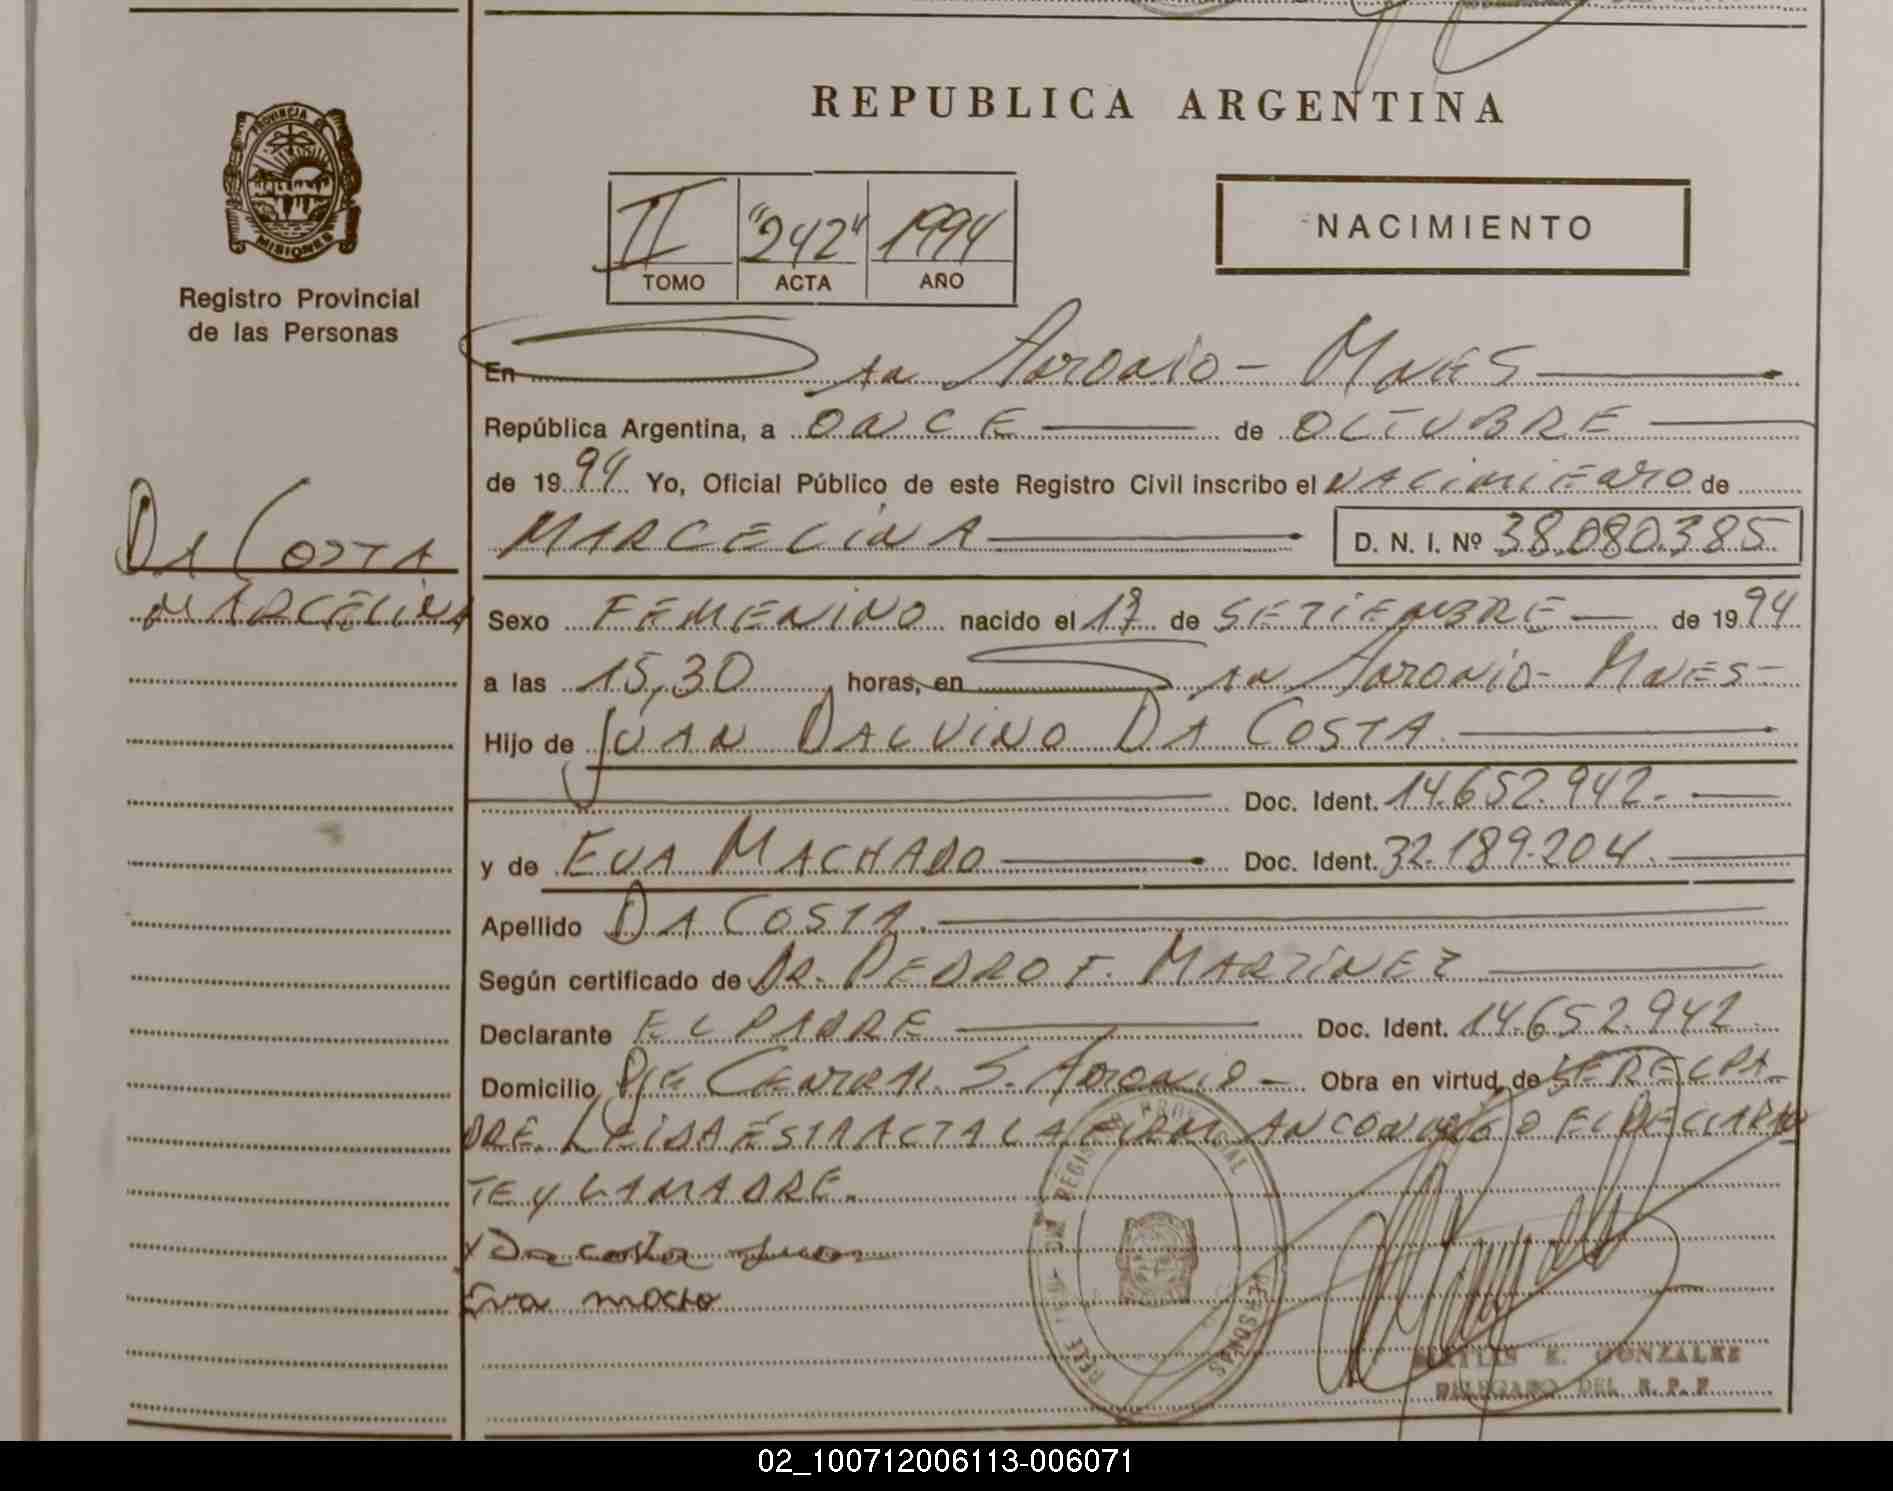 REPUBLICA ARGENTINA
PROVINCIA DE
MISIONES
Registro Provincial
de las Personas
II "242" 1994
TOMO ACTA AÑO
NACIMIENTO
En San Antonio - Mnes
República Argentina, a ONCE de OCTUBRE
de 1994 Yo, Oficial Público de este Registro Civil inscribo el NACIMIENTO de
MARCELINA D. N. I. Nº 38.080.385
DA COSTA
MARCELINA
Sexo FEMENINO nacido el 17 de SETIEMBRE de 1994
a las 15,30 horas, en San Antonio - Mnes -
Hijo de JUAN DALVINO DA COSTA
Doc. Ident. 14.652.942.
y de EVA MACHADO Doc. Ident. 32.189.204.
Apellido DA COSTA.
Según certificado de DR. PEDRO F. MARTINEZ
Declarante EL PADRE Doc. Ident. 14.652.942
Domicilio Pje CENTRAL S. ANTONIO - Obra en virtud de SER EL PA
DRE. LEIDA ESTRACTA LA FIRMAN CONMIGO EL DECLARAN
TE Y LA MADRE.
x Da costa Juan
Eva
REGISTRO PROVINCIAL
PERSONAS
E. GONZALEZ
DELEGADO DEL R. P. P.
02_100712006113-006071